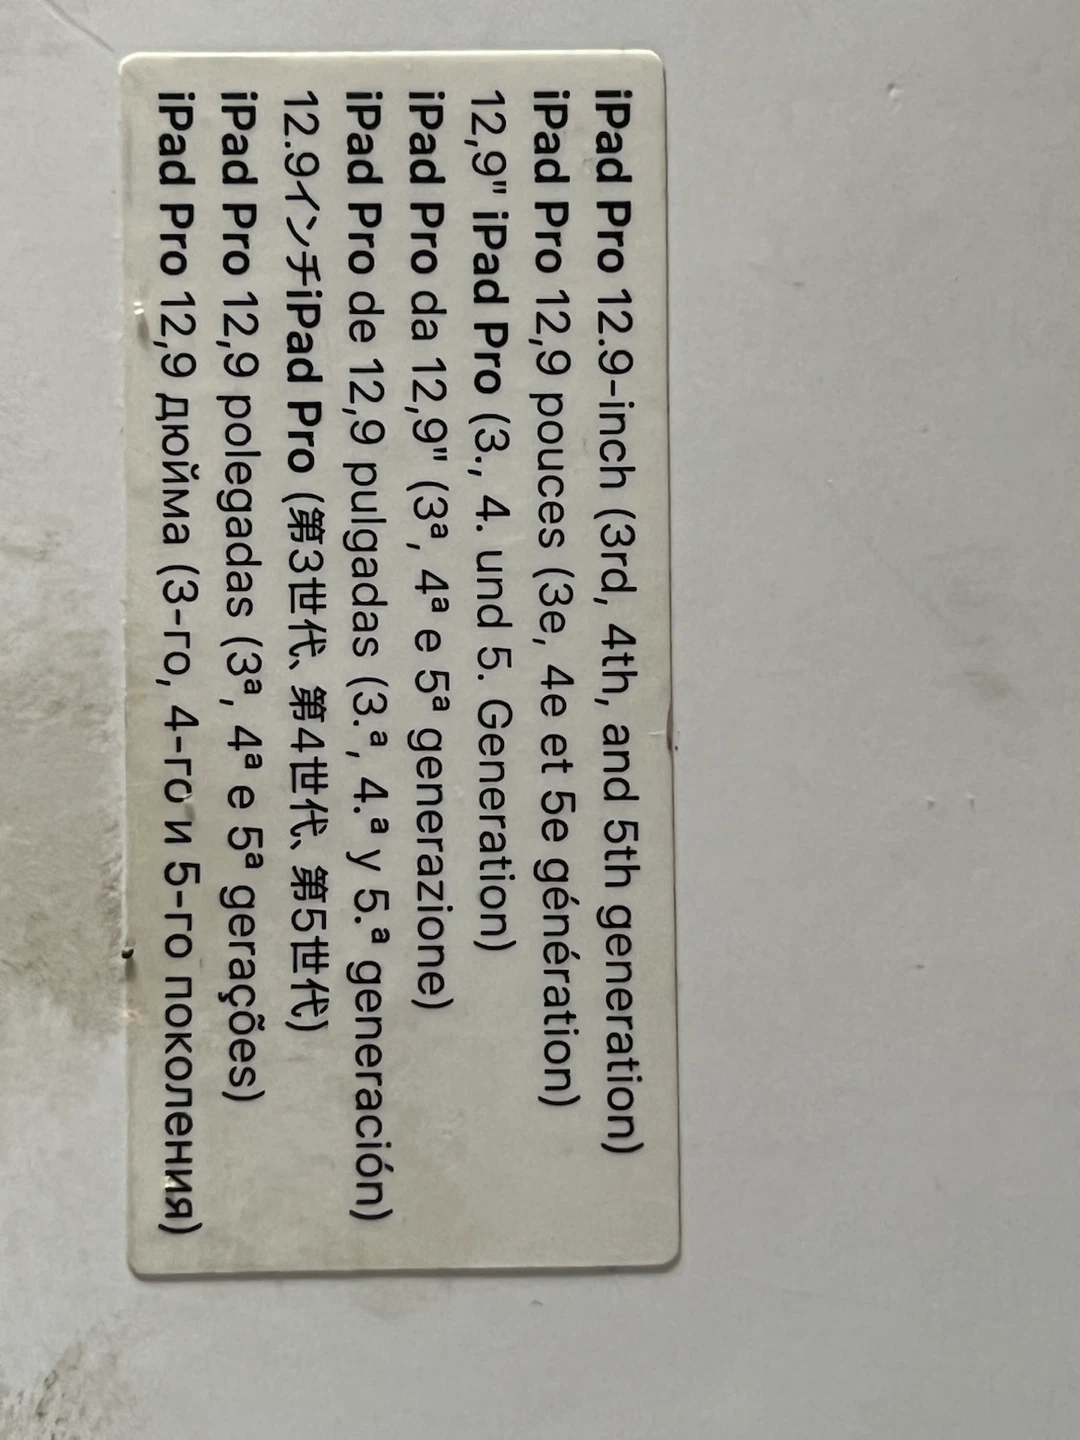 iPad Pro 12.9-inch (3rd, 4th, and 5th generation)
iPad Pro 12,9 pouces (3e, 4e et 5e génération)
12,9" iPad Pro (3., 4. und 5. Generation)
iPad Pro da 12,9" (3ª, 4ª e 5ª generazione)
iPad Pro de 12,9 pulgadas (3.ª, 4.ª y 5.ª generación)
12.9インチiPad Pro (第3世代、第4世代、第5世代)
iPad Pro 12,9 polegadas (3ª, 4ª e 5ª gerações)
iPad Pro 12,9 дюйма (3-го, 4-го и 5-го поколения)